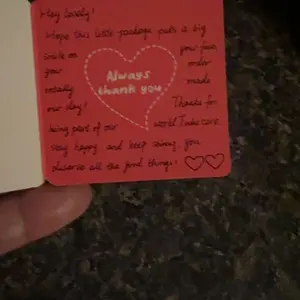 Hey lovely!
Hope this little package puts a big
smile on your face,
your order
totally made
our day! Thanks for
being part of our world. Take care,
stay happy and keep shining, you
deserve all the good things!
Always
thank you